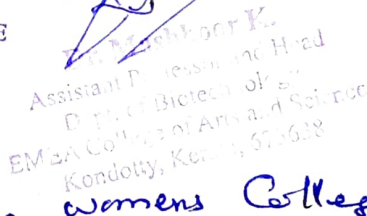 E
Mashkoor K.
Assistant Professor and Head
Dept. of Biotechnology
EMEA College of Arts and Science
Kondotty, Kerala, 673638
womens Colleg